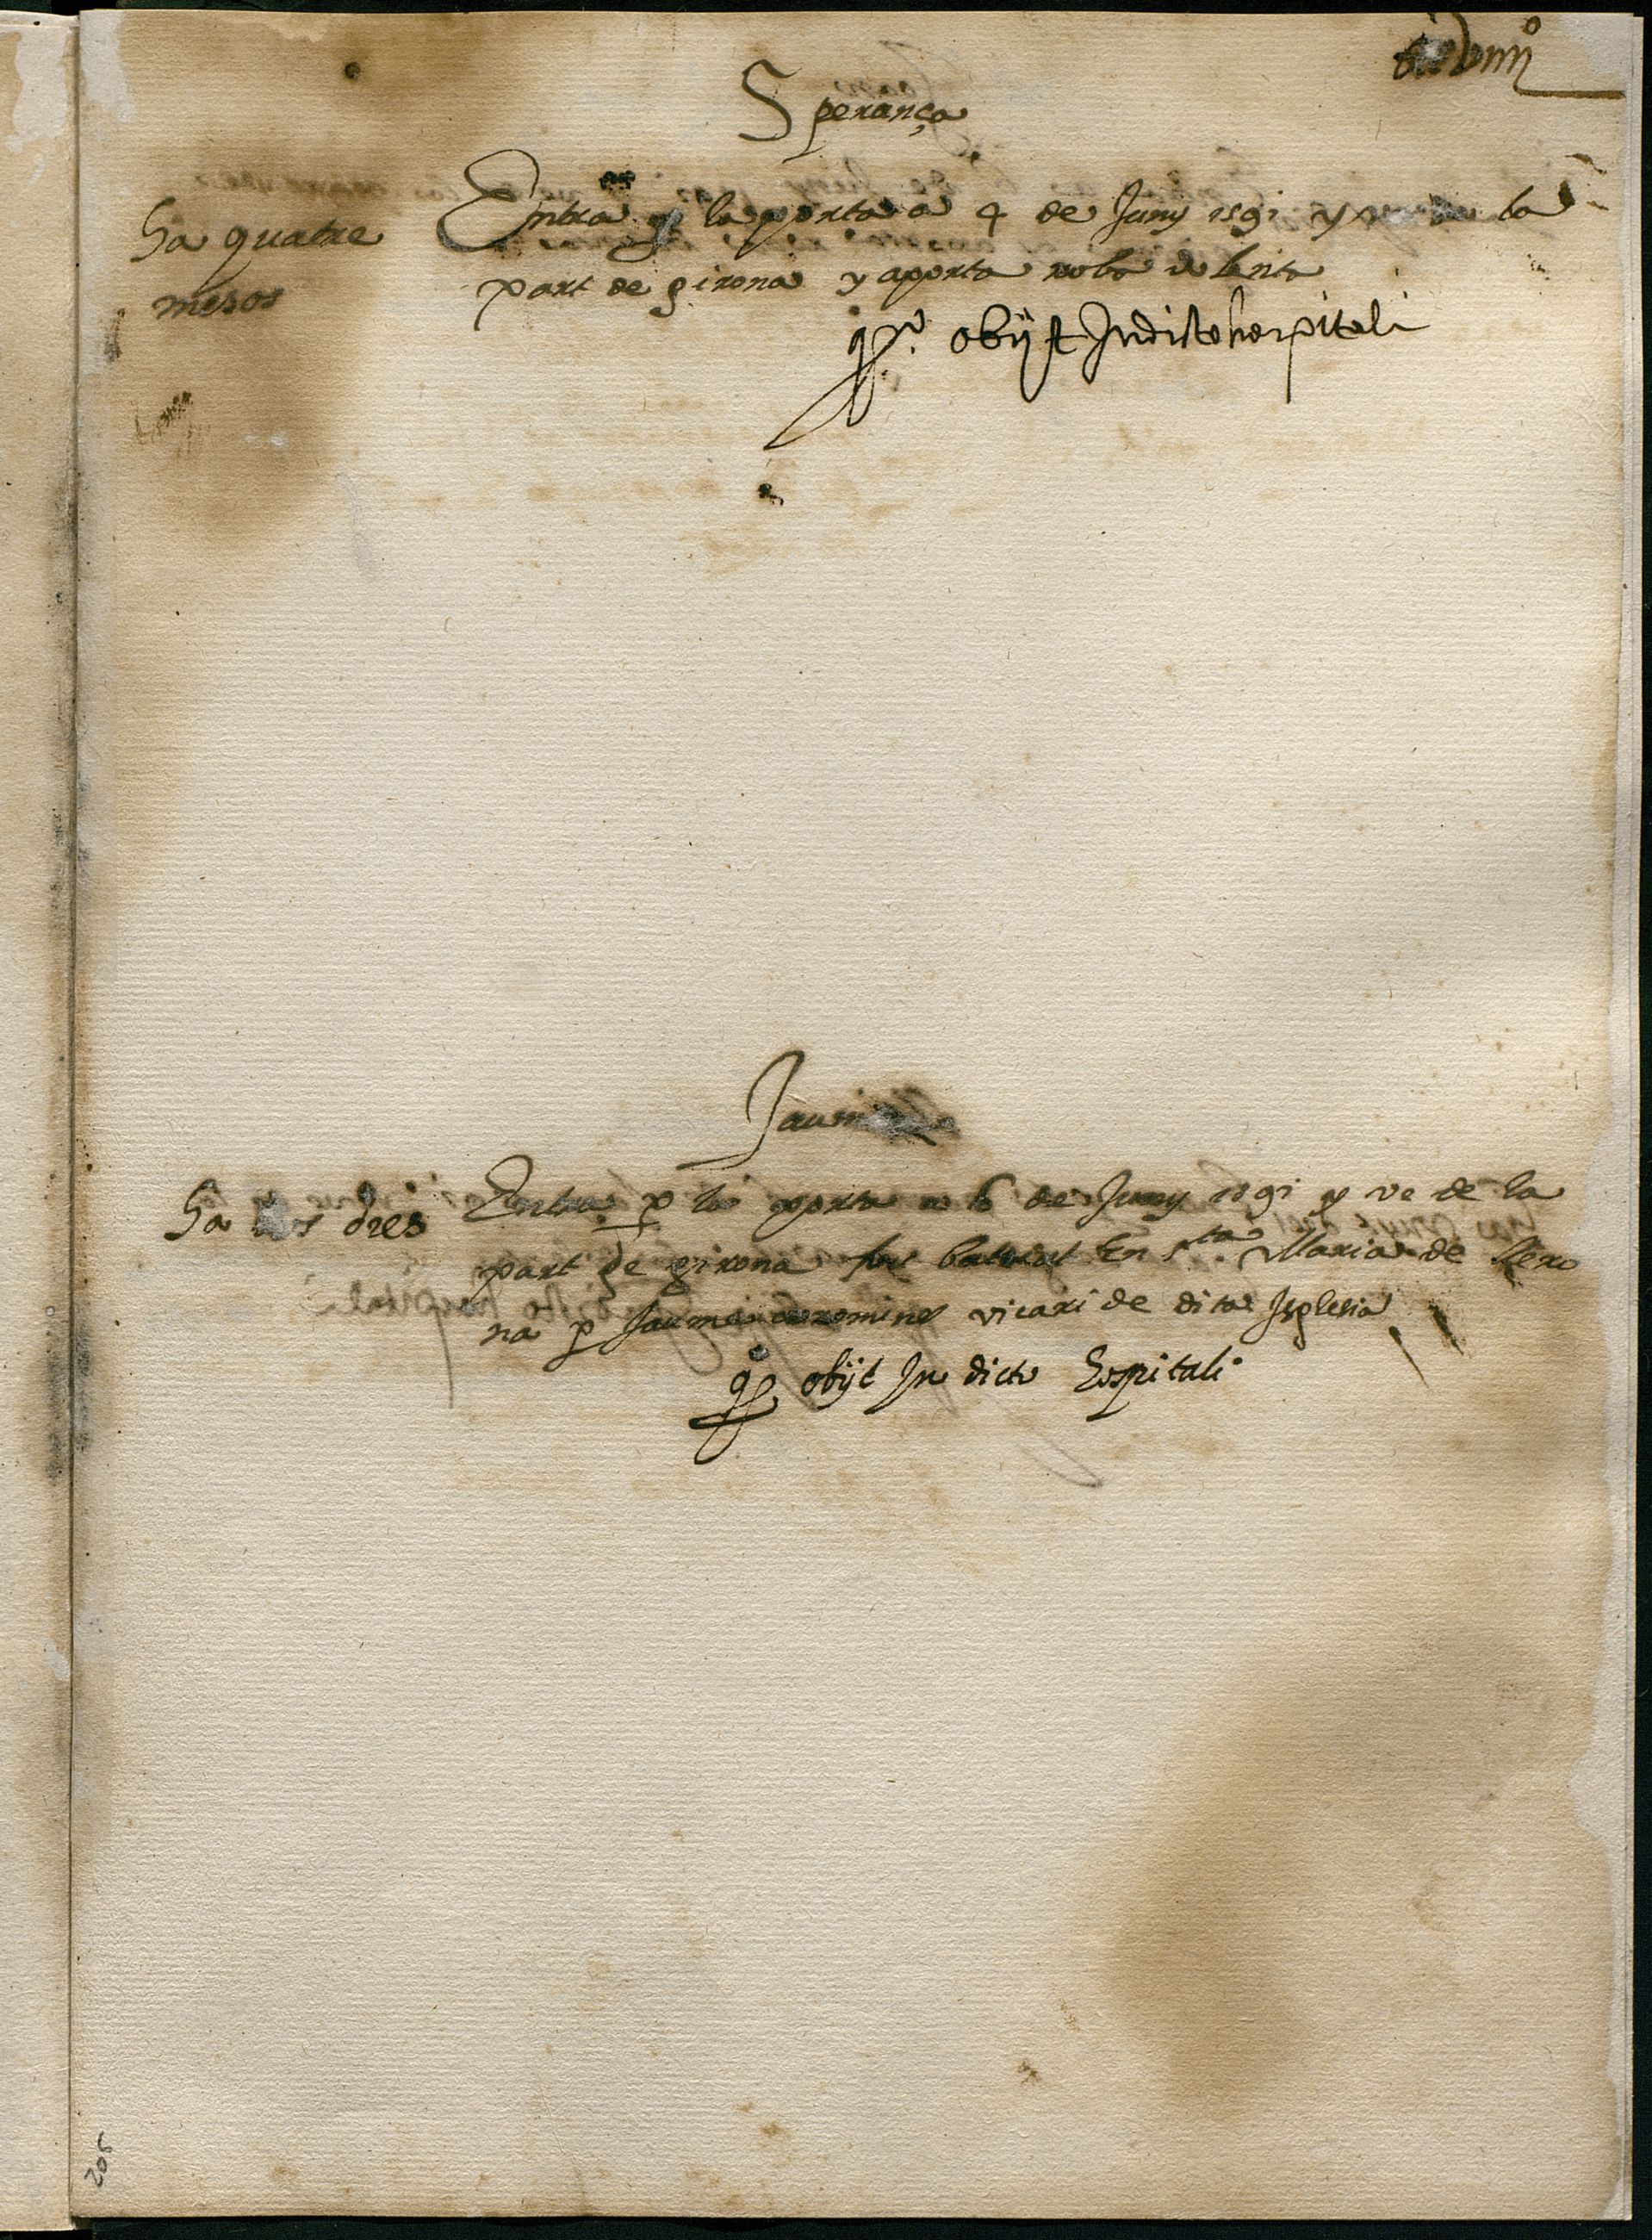 Sperança
ha quatre
mesos
Entra p la porta a 4 de Juny 1591 y ve de la
part de girona y aporta roba dolenta
obijt In dicto hospitali
Jaume
ha dies
Entra p la porta a 6 de Juny 1591 y ve de la
part de girona fou batiat En sta Maria de Llero
na p Jaume vicari de dita Isglesia
obijt In dicto hospitali
205